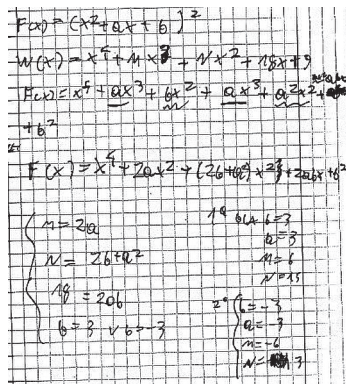 F(x) = (x² + ax + b)²
W(x) = x⁴ + mx³ + Nx² + 18x + 9
F(x) = x⁴ + ax³ + bx² + ax³ + a²x² +
+b²
F(x) = x⁴ + 2ax² + (2b+a²) x² + 2abx + b²
m = 2a
N = 2b + a²
18 = 2ab
b = 3 ∨ b = -3
1° b = 3
a = 3
m = 6
N = 15
2° b = -3
a = -3
m = -6
N = 3